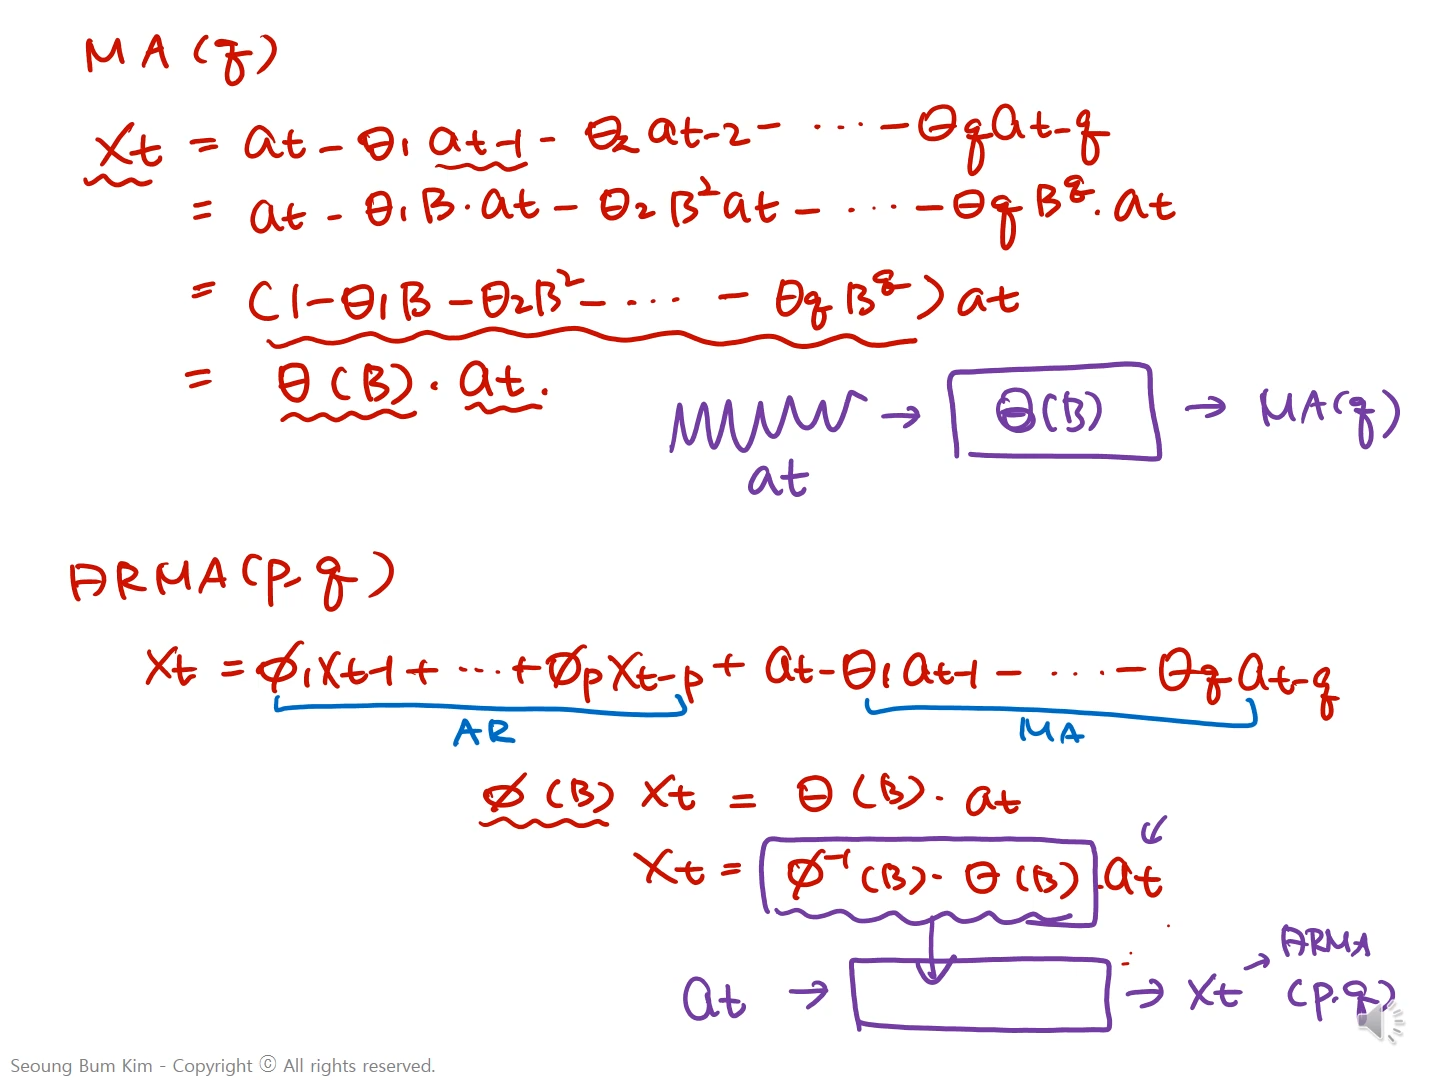 MA(q)
Xt = at - θ1 at-1 - θ2 at-2 - ··· - θq at-q
= at - θ1 B · at - θ2 B² at - ···· - θq B^q · at
= (1 - θ1 B - θ2 B² - ··· - θq B^q) at
= θ(B) · at.
at → θ(B) → MA(q)
ARMA(p.q)
Xt = φ1 Xt-1 + ··· + φp Xt-p + at - θ1 at-1 - ··· - θq at-q
AR MA
φ(B) Xt = θ(B) · at
Xt = φ⁻¹(B) · θ(B) · at
at → → Xt → ARMA
(p.q)
Seoung Bum Kim - Copyright ⓒ All rights reserved.